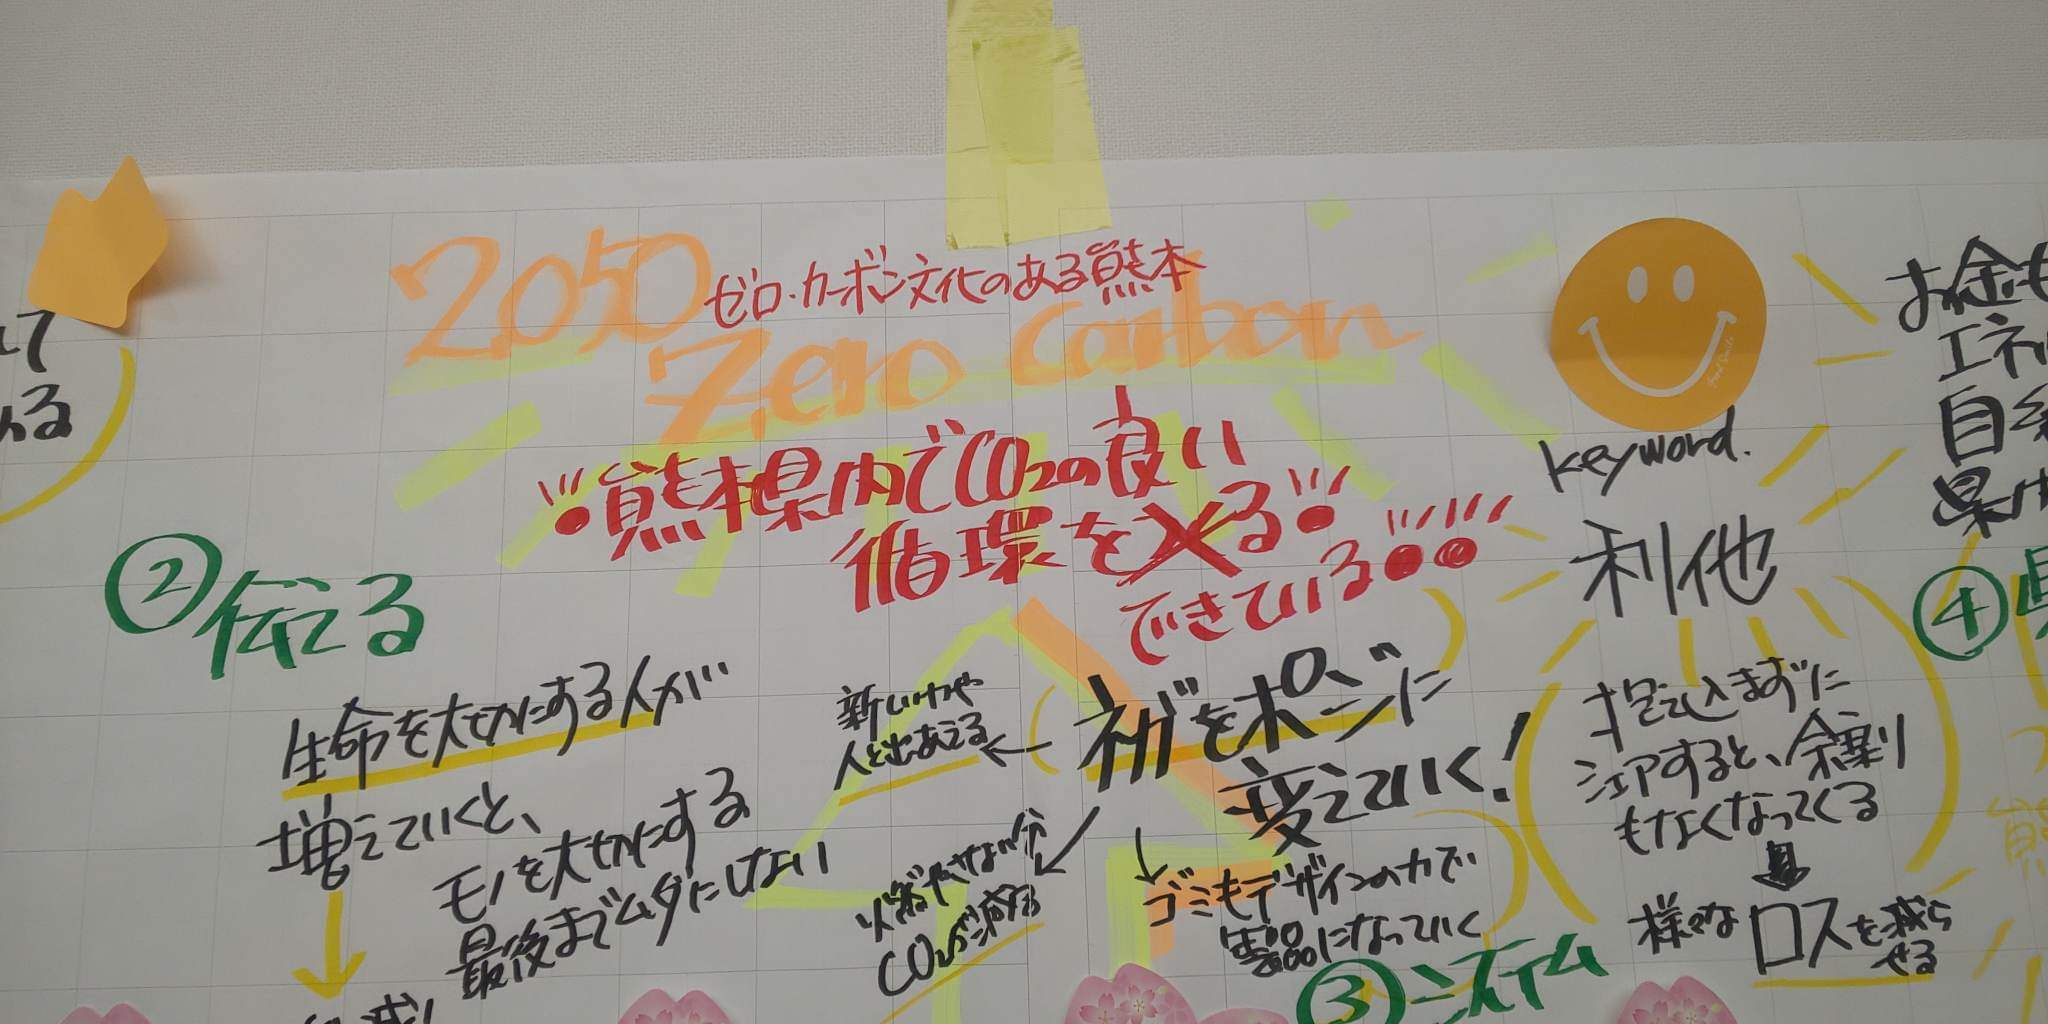 2050
ゼロ・カーボン文化のある熊本
Zero Carbon
熊本県内でCO2の良い
循環を
できている
keyword.
利他
抱え込まずに
シェアすると、余剰
もなくなってくる
様々なロスを減ら
せる
②伝える
生命を大切にする人が
増えていくと、
モノを大切にする
最後までムダにしない
ネガをポジに
変えていく!
新しい力や
人と出あえる
燃やさない分
CO2が減る
ゴミもデザインの力で
製品になっていく
③システム
お金も
エネル
自給
県内
④県
める